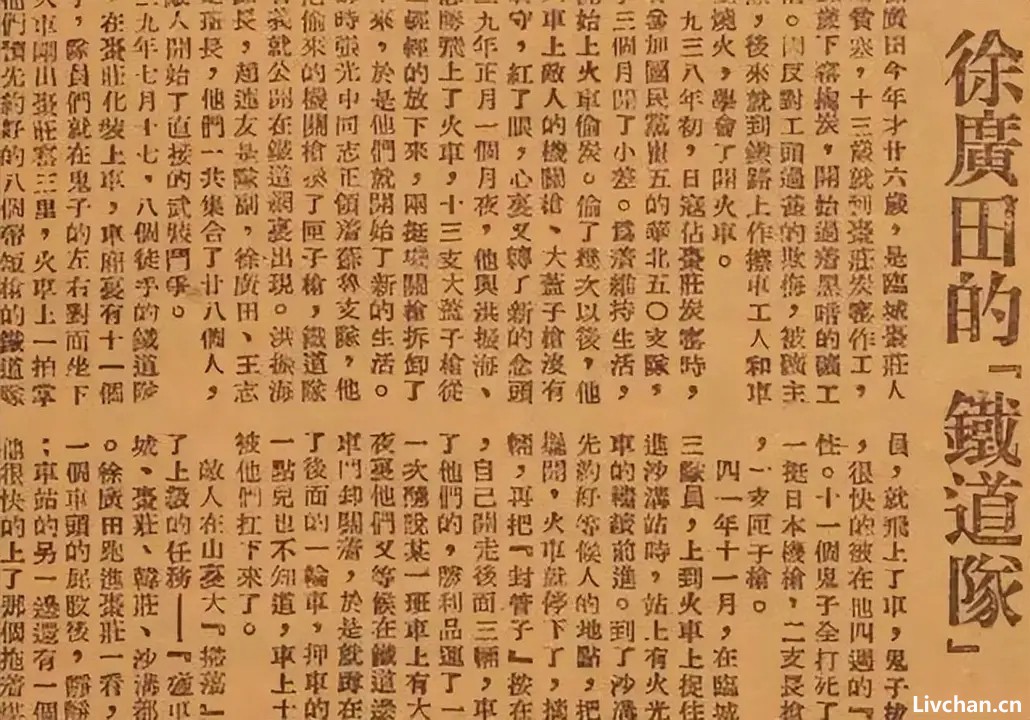 徐廣田的『鐵道隊』
廣田今年才廿六歲,是臨城棗莊人
貧寒,十三歲就到棗莊炭窰作工,
下窰掏炭,開始過着黑暗的礦工
因反對工頭過舊的欺侮,被礦主
,後來就到鐵路上作擦車工人和車
燒火,學會了開火車。
九三八年初,日寇佔棗莊炭窰時,
參加國民黨崔五的華北五〇支隊,
三個月開了小差。爲着維持生活,
始上火車偷炭。偷了幾次以後,他
車上敵人的機關槍、大蓋子槍沒有
守,紅了眼,心裏又轉了新的念頭
九年正月一個月夜,他與洪振海、
勝飛上了火車,十三支大蓋子槍從
輕輕的放下來,兩挺機關槍拆卸了
來,於是他們就開始了新的生活。
時張光中同志正領着蘇魯支隊,他
把偷來的機關槍換了匣子槍,鐵道隊
義就公開在鐵道綫裏出現。洪振海
長,趙連友是隊副,徐廣田、王志
是班長,他們一共集合了廿八個人,
敵人開始了直接的武裝鬥爭。
九年七月十七,八個徒手的鐵道隊
在棗莊化裝上車,車廂裏有十一個
,隊員們就在鬼子的左右對面坐下
火車剛出棗莊窰三里,火車上一拍掌
們預先約好的八個帶短槍的鐵道隊
員,就飛上了車,鬼子
,很快的被在他四週的『
性。十一個鬼子全打死了
一挺日本機槍,二支長槍
,一支匣子槍。
四一年十一月,在臨城
三隊員,上到火車上捉住
進沙溝站時,站上有火光
車的繼續前進。到了沙溝
先約好等候人的地點,把
開,火車就停下了,摘
輛,再把『封管子』按在
,自己開走後面三輛,車
了他們的,勝利品運了一
一次隨說某一班車上有大
夜裏他們又等候在鐵道邊
車門卸關着,於是就蹲在
了後面的一輪車,押車的
一點兒也不知道,車上十
被他們扛下來了。
敵人在山裏大『掃蕩』
了上級的任務——『碰車
城、棗莊、韓莊、沙溝都
。徐廣田跑進棗莊一看,
一個車頭的屁股後,靜靜
;車站的另一邊還有一個
他很快的上了那個拖着煤
Livchan.cn